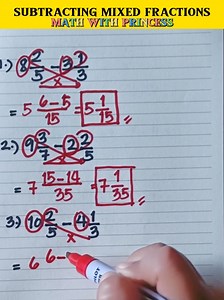 SUBTRACTING MIXED FRACTIONS
MATH WITH PRINCESS
1.) 8 2/5 - 3 1/3
= 5 6-5/15 = 5 1/15 //
2.) 9 3/7 - 2 2/5
= 7 15-14/35 = 7 1/35 //
3.) 10 2/5 - 4 1/3
= 6 6-